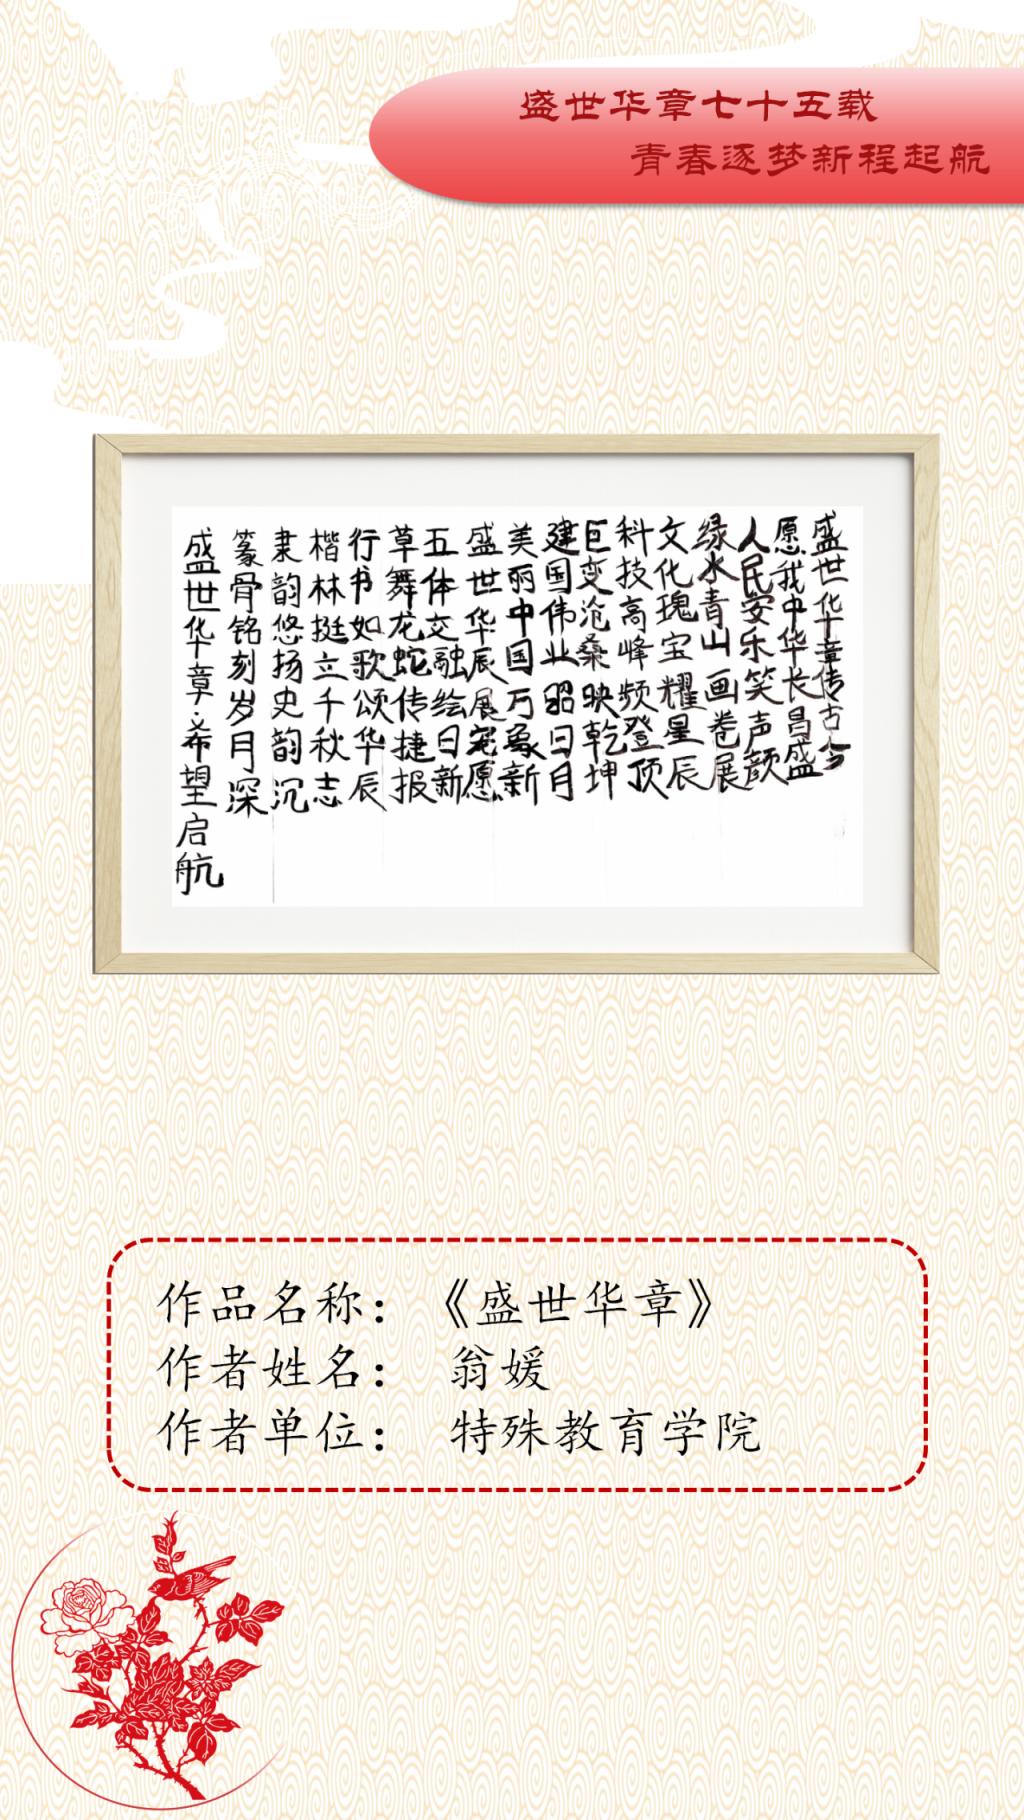 盛世华章七十五载
青春逐梦新程起航
盛世华章传古今
愿我中华长昌盛
人民安乐笑声颜
绿水青山画卷展
文化瑰宝耀星辰
科技高峰频登顶
巨变沧桑映乾坤
建国伟业昭日月
美丽中国万象新
盛世华辰展宏愿
五体交融绘日新
草舞龙蛇传捷报
行书如歌颂华辰
楷林挺立千秋志
隶韵悠扬史韵沉
篆骨铭刻岁月深
盛世华章·希望启航
作品名称：《盛世华章》
作者姓名：翁媛
作者单位：特殊教育学院